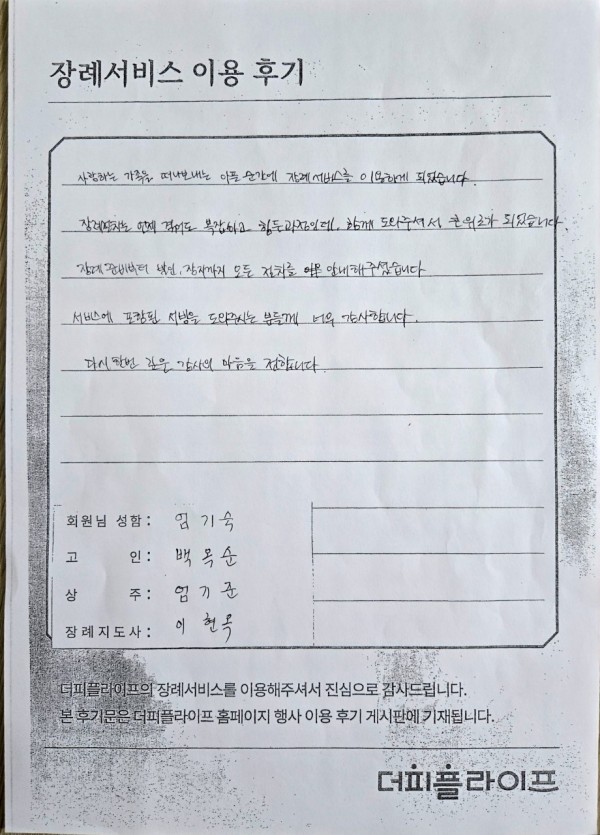 장례서비스 이용 후기
사랑하는 가족을 떠나보내는 아픈 순간에 장례서비스를 이용하게 되었습니다.
장례절차는 언제 겪어도 복잡하고 힘든과정인데, 함께 도와주셔서 큰위로가 되었습니다.
장례준비부터 발인, 장지까지 모든 절차를 안내해주셨습니다
서비스에 포함된 도와주시는 분들께 너무 감사합니다.
다시한번 깊은 감사의 마음을 전합니다.
회원님 성함: 엄기숙
고 인: 백옥순
상 주: 엄기준
장례지도사: 이현옥
더피플라이프의 장례서비스를 이용해주셔서 진심으로 감사드립니다.
본 후기문은 더피플라이프 홈페이지 행사 이용 후기 게시판에 기재됩니다.
더피플라이프